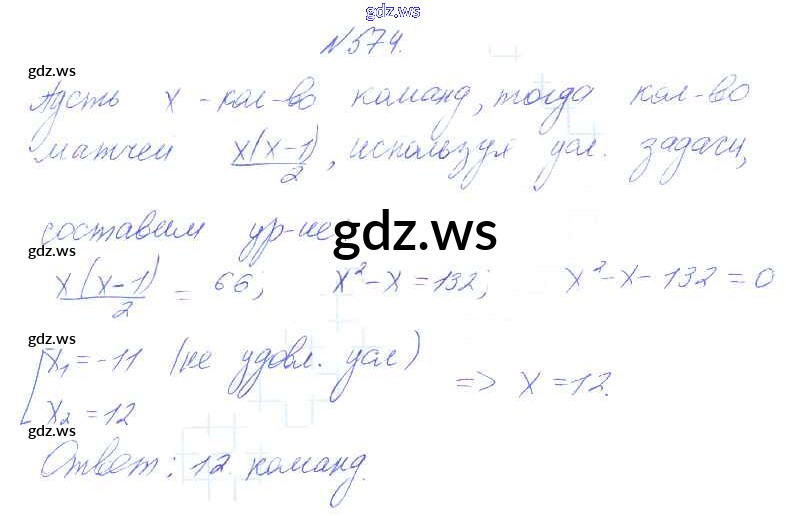 gdz.ws
№574.
gdz.ws
Пусть x - кол-во команд, тогда кол-во
матчей x(x-1)/2, используя усл. задачи,
gdz.ws
составим ур-ие:
gdz.ws
gdz.ws
x(x-1)/2 = 66; x²-x=132; x²-x-132=0
gdz.ws
[x₁=-11 (не удовл. усл)
x₂=12 => x=12.
gdz.ws
Ответ: 12 команд.
gdz.ws